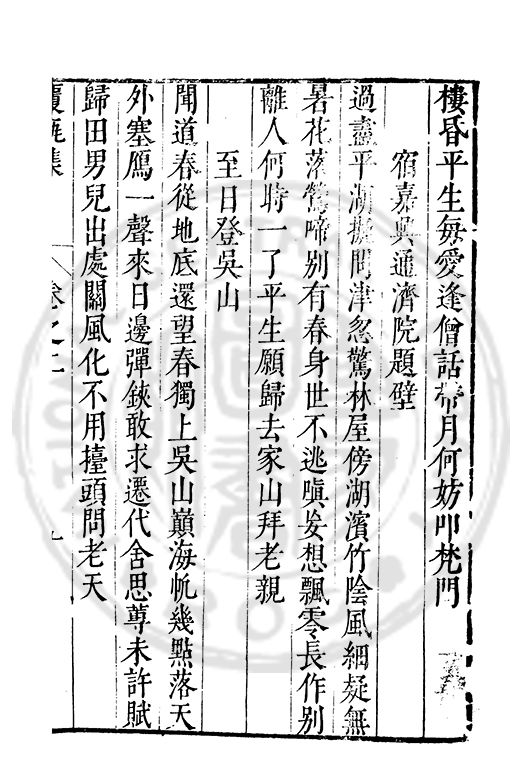 樓昏平生每愛逢僧話帶月何妨叩梵門
宿嘉興通濟院題壁
過盡平湖擬問津忽驚林屋傍湖濱竹陰風細疑無
暑花落鶯啼别有春身世不逃嗔妄想飄零長作别
離人何時一了平生願歸去家山拜老親
至日登吳山
聞道春從地底還望春獨上吳山巔海帆幾點落天
外塞鴈一聲來日邊彈鋏敢求遷代舍思蓴未許賦
歸田男兒出處關風化不用擡頭問老天
覆瓿集 卷之二 九